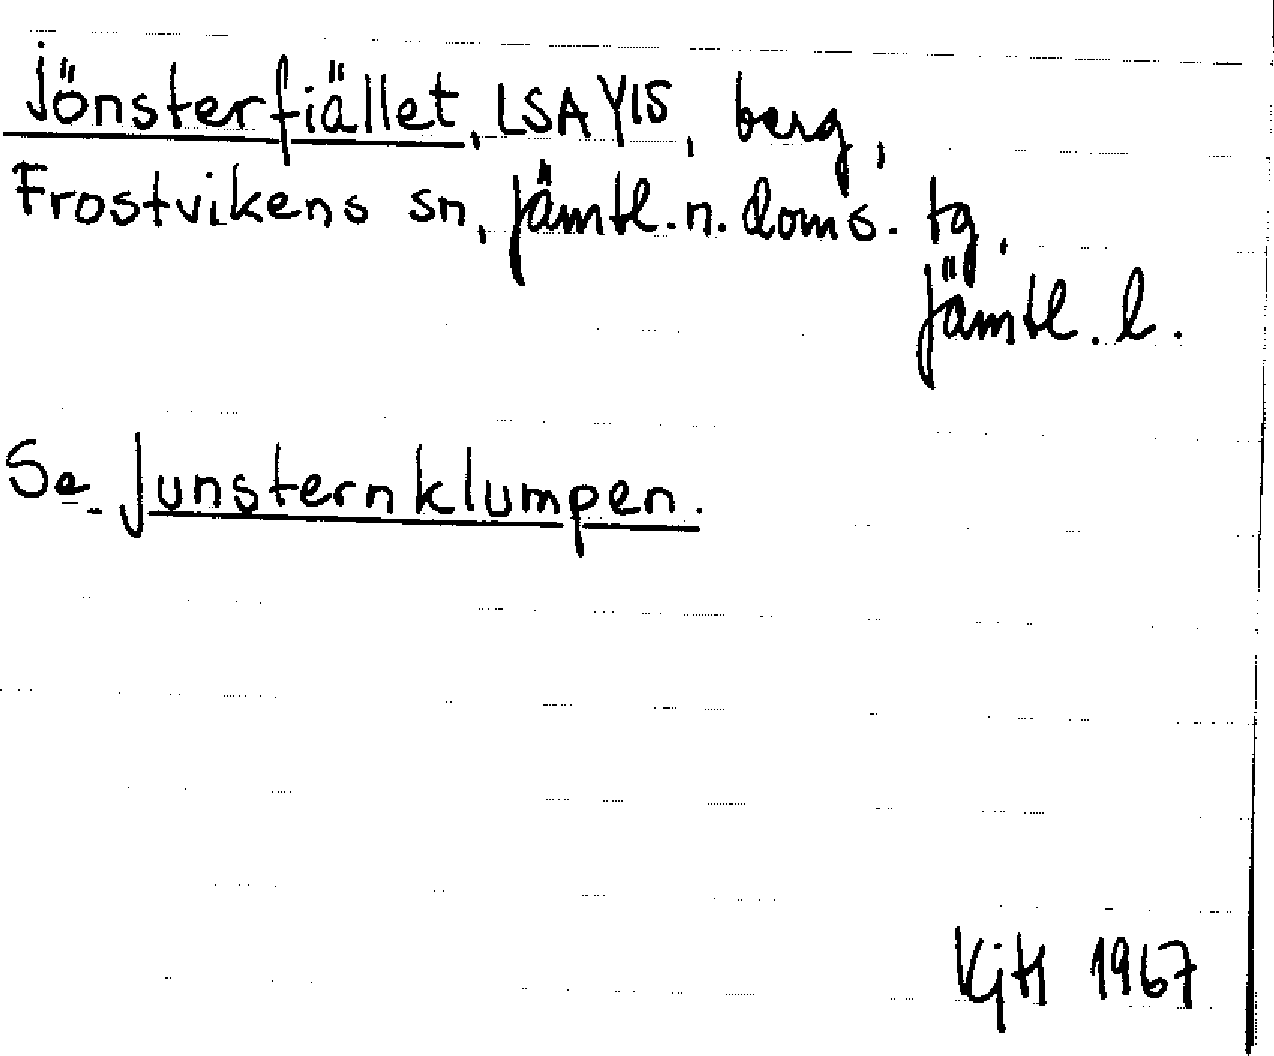 Jönsterfiället, LSA Y15, berg,
Frostvikens sn, Jämtl. n. doms. tg,
Jämtl. l.
Se Junsternklumpen.
KjH 1967